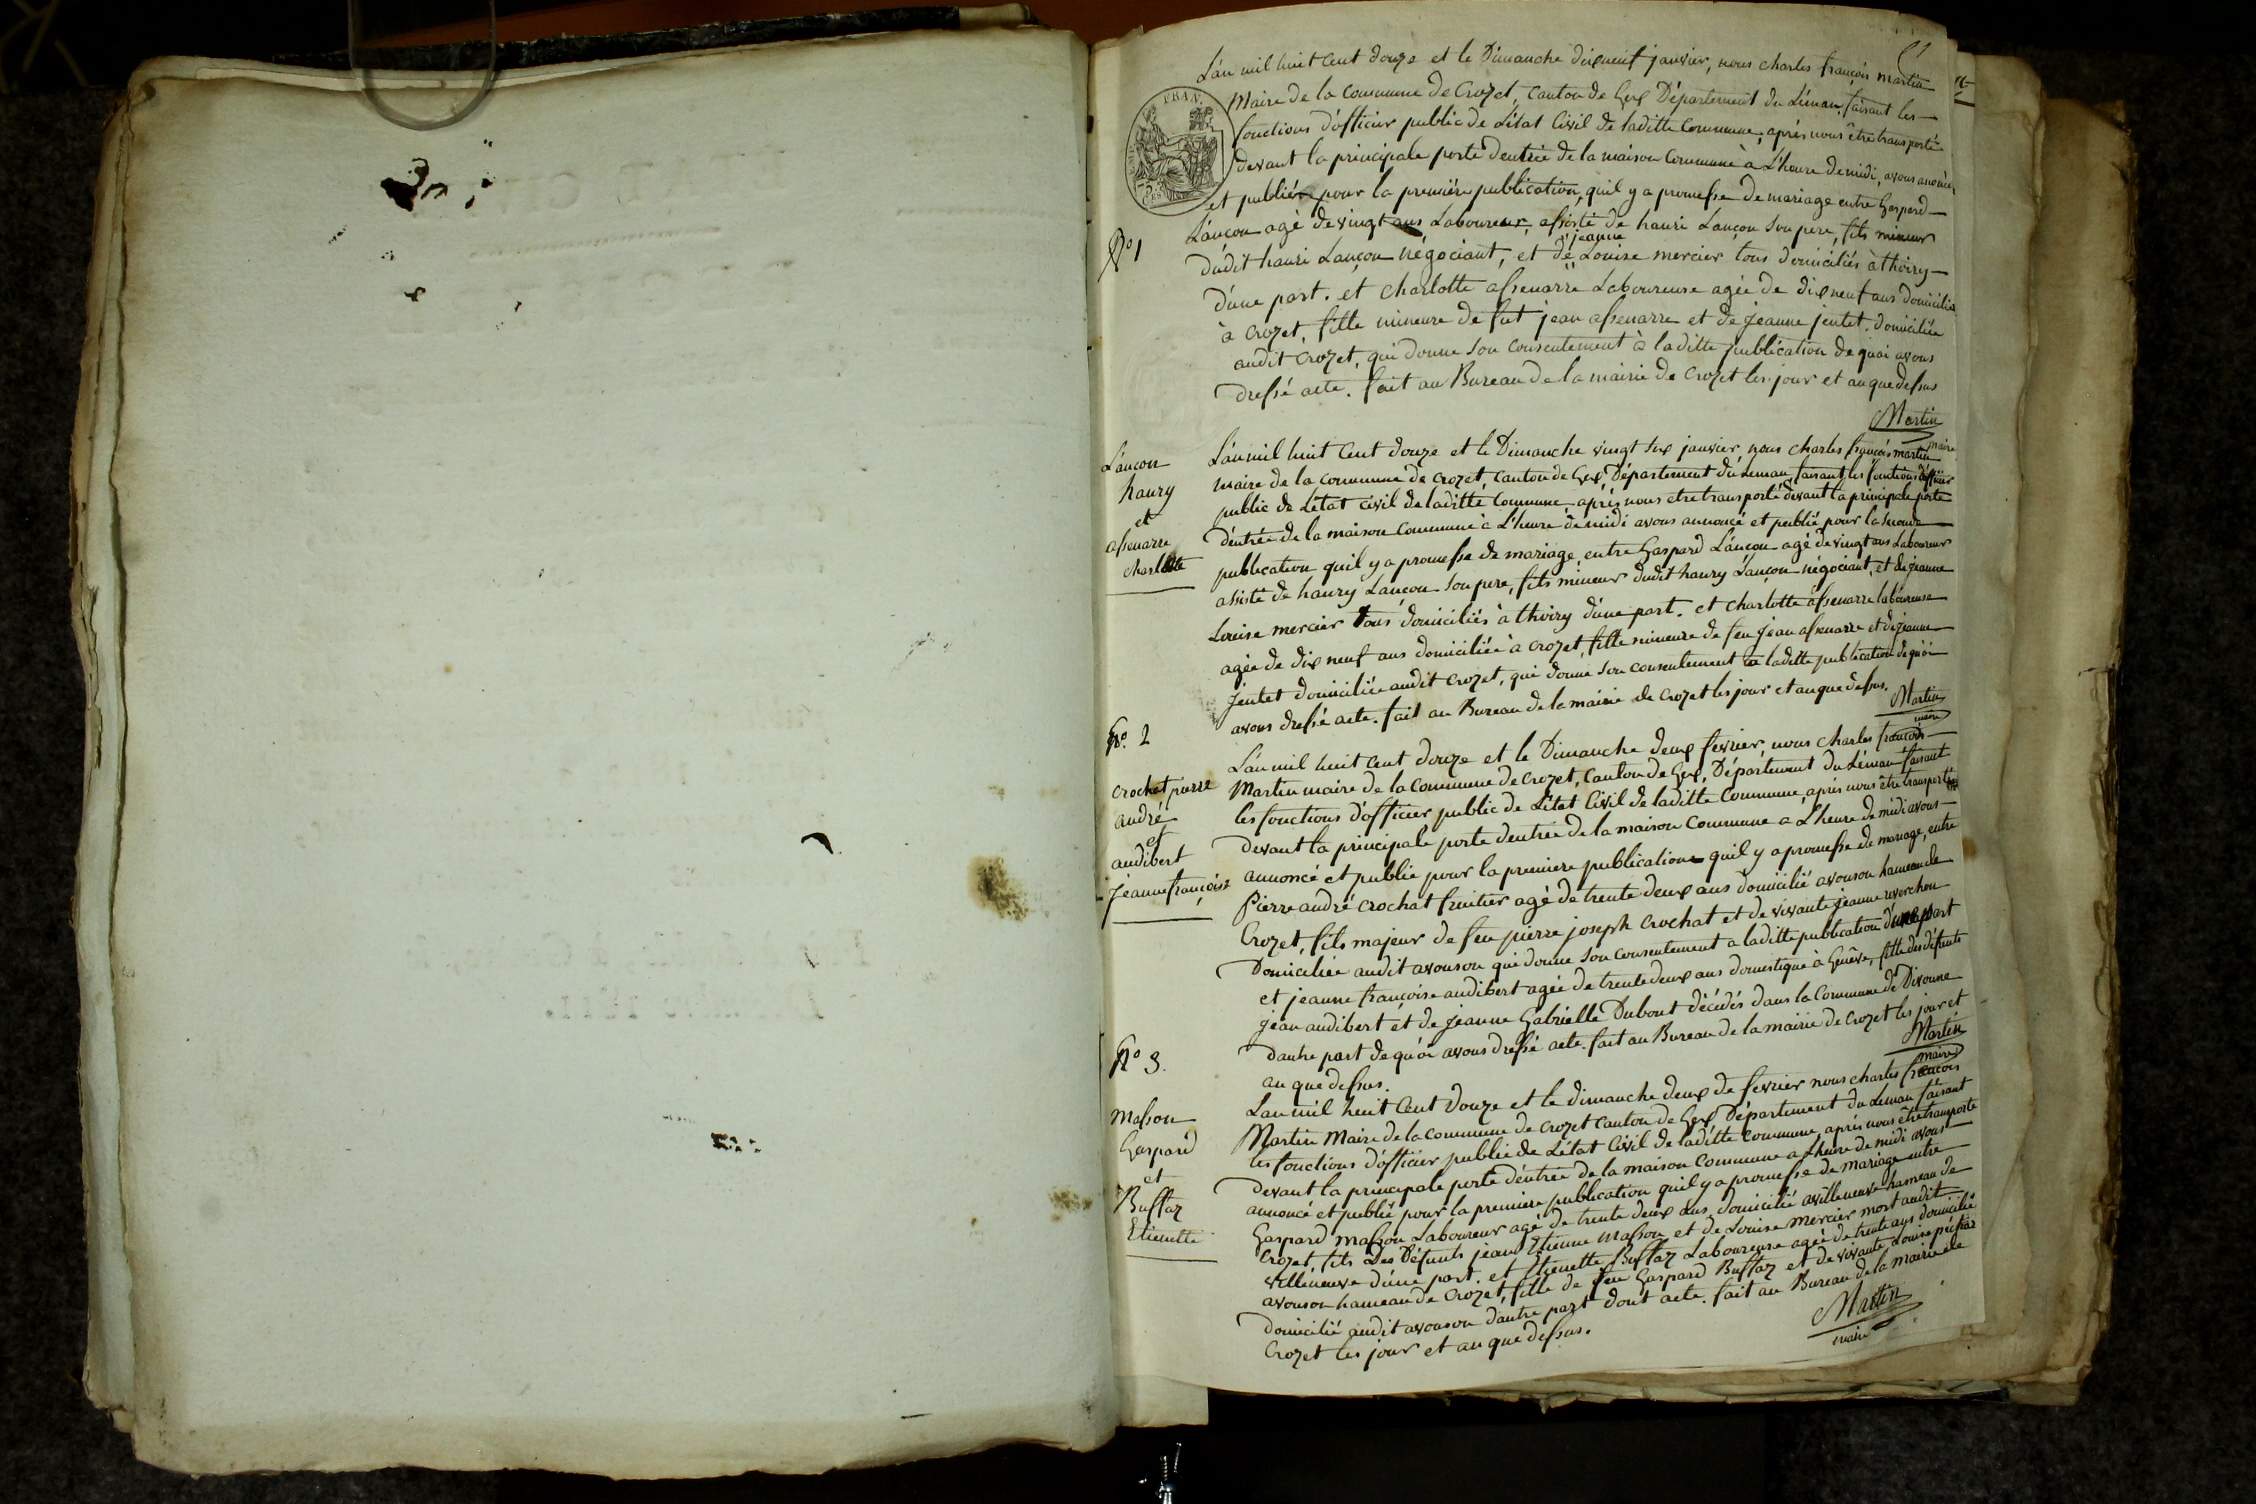 L'an mil huit Cent douze et le Dimanche dixneuf janvier, nous charles françois martin
Maire de la Commune de Crozet, canton de Gex Département du Léman, faisant les
fonctions d'officier public de L'état Civil de laditte Commune, après nous être transporté
devant la principale porte d'entrée de la maison Commune à L'heure de midi, avons anoncé
et publiér pour la première publication, quil y a promesse de mariage entre Gaspard
N° 1
Lançon agé de vingt ans Laboureur, assisté de hanri Lançon son pere, fils mineur
jeanne
dudit hanri Lançon négociant, et de Louise mercier tous domiciliés à thoiry
d'une part. et Charlotte assenarre Laboureuse agée de dix neuf ans domiciliée
à Crozet, fille mineure de fut jean assenarre et de jeanne jentet, domiciliée
audit Crozet, qui donne son consentement à laditte publication de quoi avons
dressé acte. fait au Bureau de la mairie de Crozet les jour et an que dessus
Martin
maire
Lançon
hanry
et
assenarre
charlotte
L'an mil huit Cent douze et le Dimanche vingt six janvier, nous charles françois martin
maire de la commune de crozet, canton de Gex, Département du Leman, faisant les fonctions d'officier
public de L'état civil de laditte Commune, après nous etre transporté devant la principale porte
d'entrée de la maison Commune à L'heure de midi avons annoncé et publié pour la seconde
publication quil y a promesse de mariage, entre Gaspard Lançon agé de vingt ans Laboureur
assisté de hanry Lançon son pere, fils mineur dudit hanry Lançon négociant, et de jeanne
Louise mercier tous domiciliés à thoiry d'une part. et Charlotte assenarre laboureuse
agée de dix neuf ans domiciliée à crozet, fille mineure de feu jean assenarre et de jeanne
jentet domiciliée audit crozet, qui donne son consentement a laditte publication de quoi
avons dressé acte. fait au Bureau de la mairie de Crozet les jour et an que dessus.
Martin
maire
N° 2
crochat pierre
andré
et
audibert
jeanne françoise
L'an mil huit cent douze et le Dimanche deux fevrier, nous charles françois
Martin maire de la Commune de Crozet, Canton de Gex, Département du Léman faisant
les fonctions d'officier public de L'état Civil de laditte Commune, après nous être transporté
devant la principale porte d'entrée de la maison Commune a L'heure de midi avons
annoncé et publié pour la premiere publication quil y a promesse de mariage, entre
Pierre andré Crochat fruitier agé de trente deux ans domicilié avouson hameau de
Crozet, fils majeur de feu pierre joseph Crochat et de vivante jeanne
Domiciliée audit avouson qui donne son consentement a laditte publication d'une part
et jeanne françoise audibert agée de trente deux ans domestique à Genêve, fille des défunts
jean audibert et de jeanne Gabrielle Dubout décédés dans la Commune de Divonne
d'autre part de quoi avons dressé acte. fait au Bureau de la mairie de Crozet les jour et
an que dessus.
Martin
maire
N° 3.
Masson
Gaspard
et
Buffaz
Etienette
L'an mil huit Cent douze et le dimanche deux de fevrier nous charles françois
Martin Maire de la Commune de Crozet Canton de Gex Département du Leman faisant
les fonctions d'officier public de L'état Civil de laditte Commune, après nous être transporté
devant la principale porte d'entrée de la maison Commune a L'heure de midi avons
annoncé et publié pour la premiere publication quil y a promesse de mariage entre
Gaspard Masson Laboureur agé de trente deux ans, domicilié avilleneuve hameau de
Crozet, fils Des Défunts jean Etienne Masson et de Louise Mercier mort audit
villeneuve d'une part. et Etienette Buffaz Laboureuse agée de trente ans domiciliée
avouson hameau de Crozet, fille de feu Gaspard Buffaz et de vivante Louise
domicilié audit avouson d'autre part dont acte. fait au Bureau de la mairie de
Crozet les jour et an que dessus.
Martin
maire